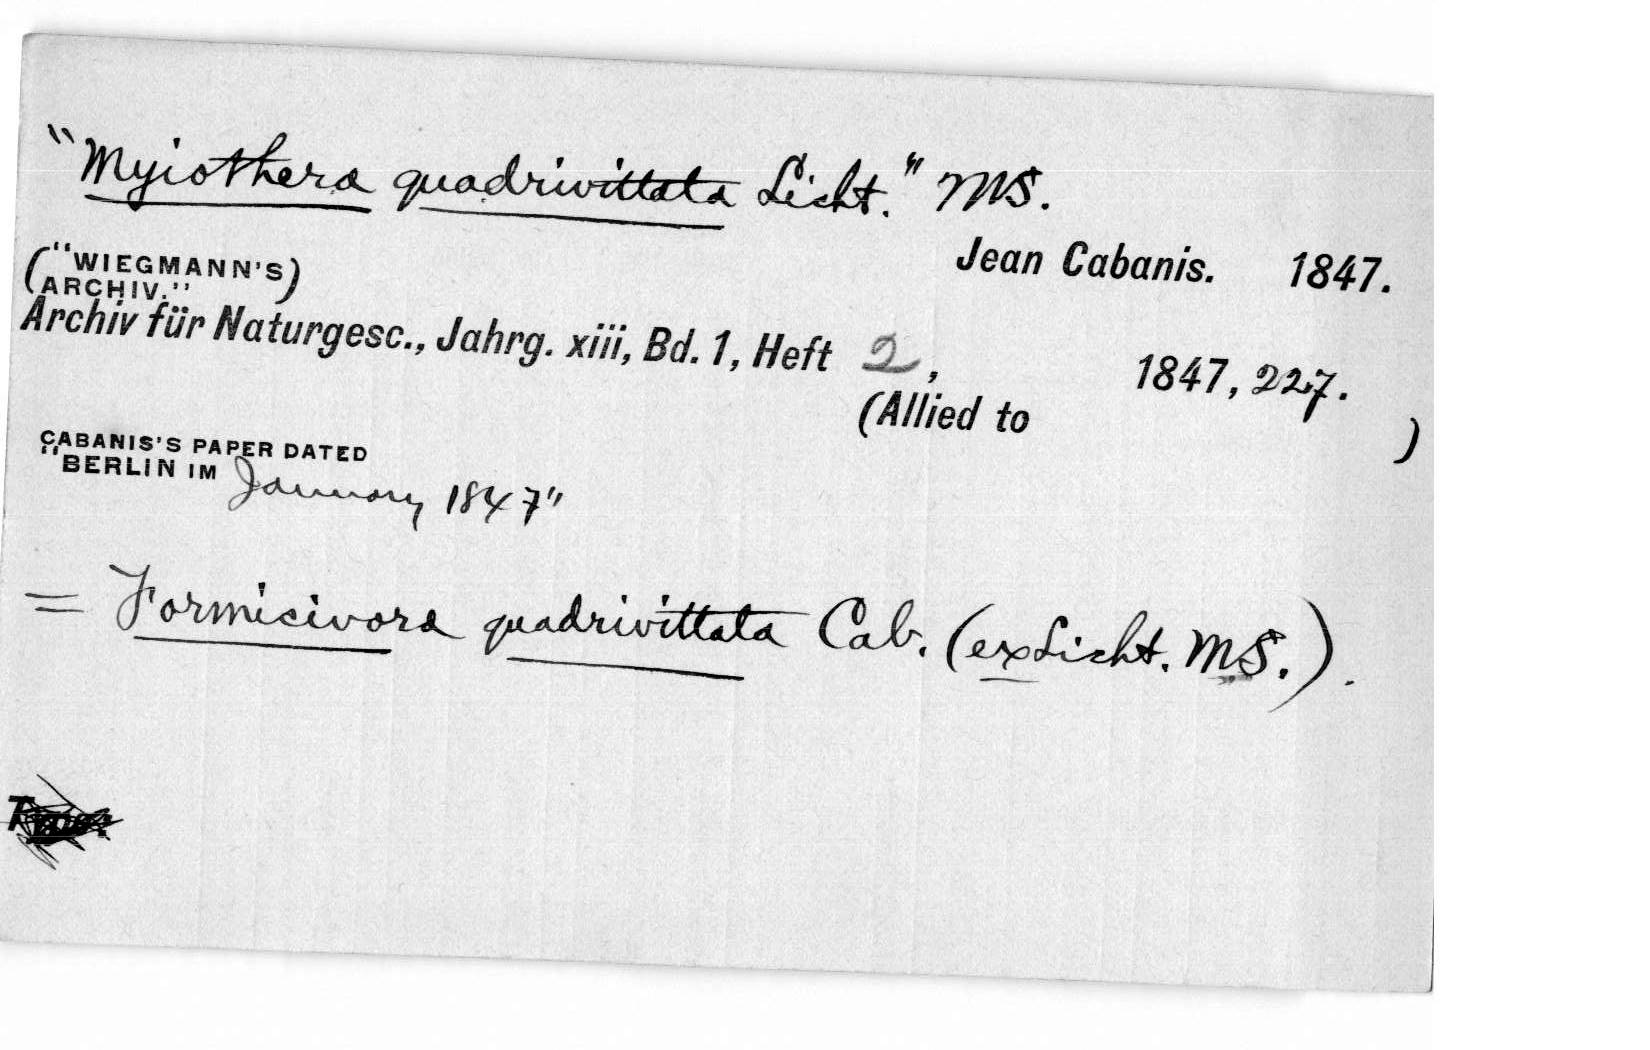 "Myiothera quadrivittata Licht." MS.
Jean Cabanis. 1847.
("WIEGMANN'S
ARCHIV.")
Archiv für Naturgesc., Jahrg. xiii, Bd. 1, Heft 2, 1847, 227.
(Allied to )
CABANIS'S PAPER DATED
"BERLIN IM January 1847"
= Formicivora quadrivittata Cab. (ex Licht. MS.).